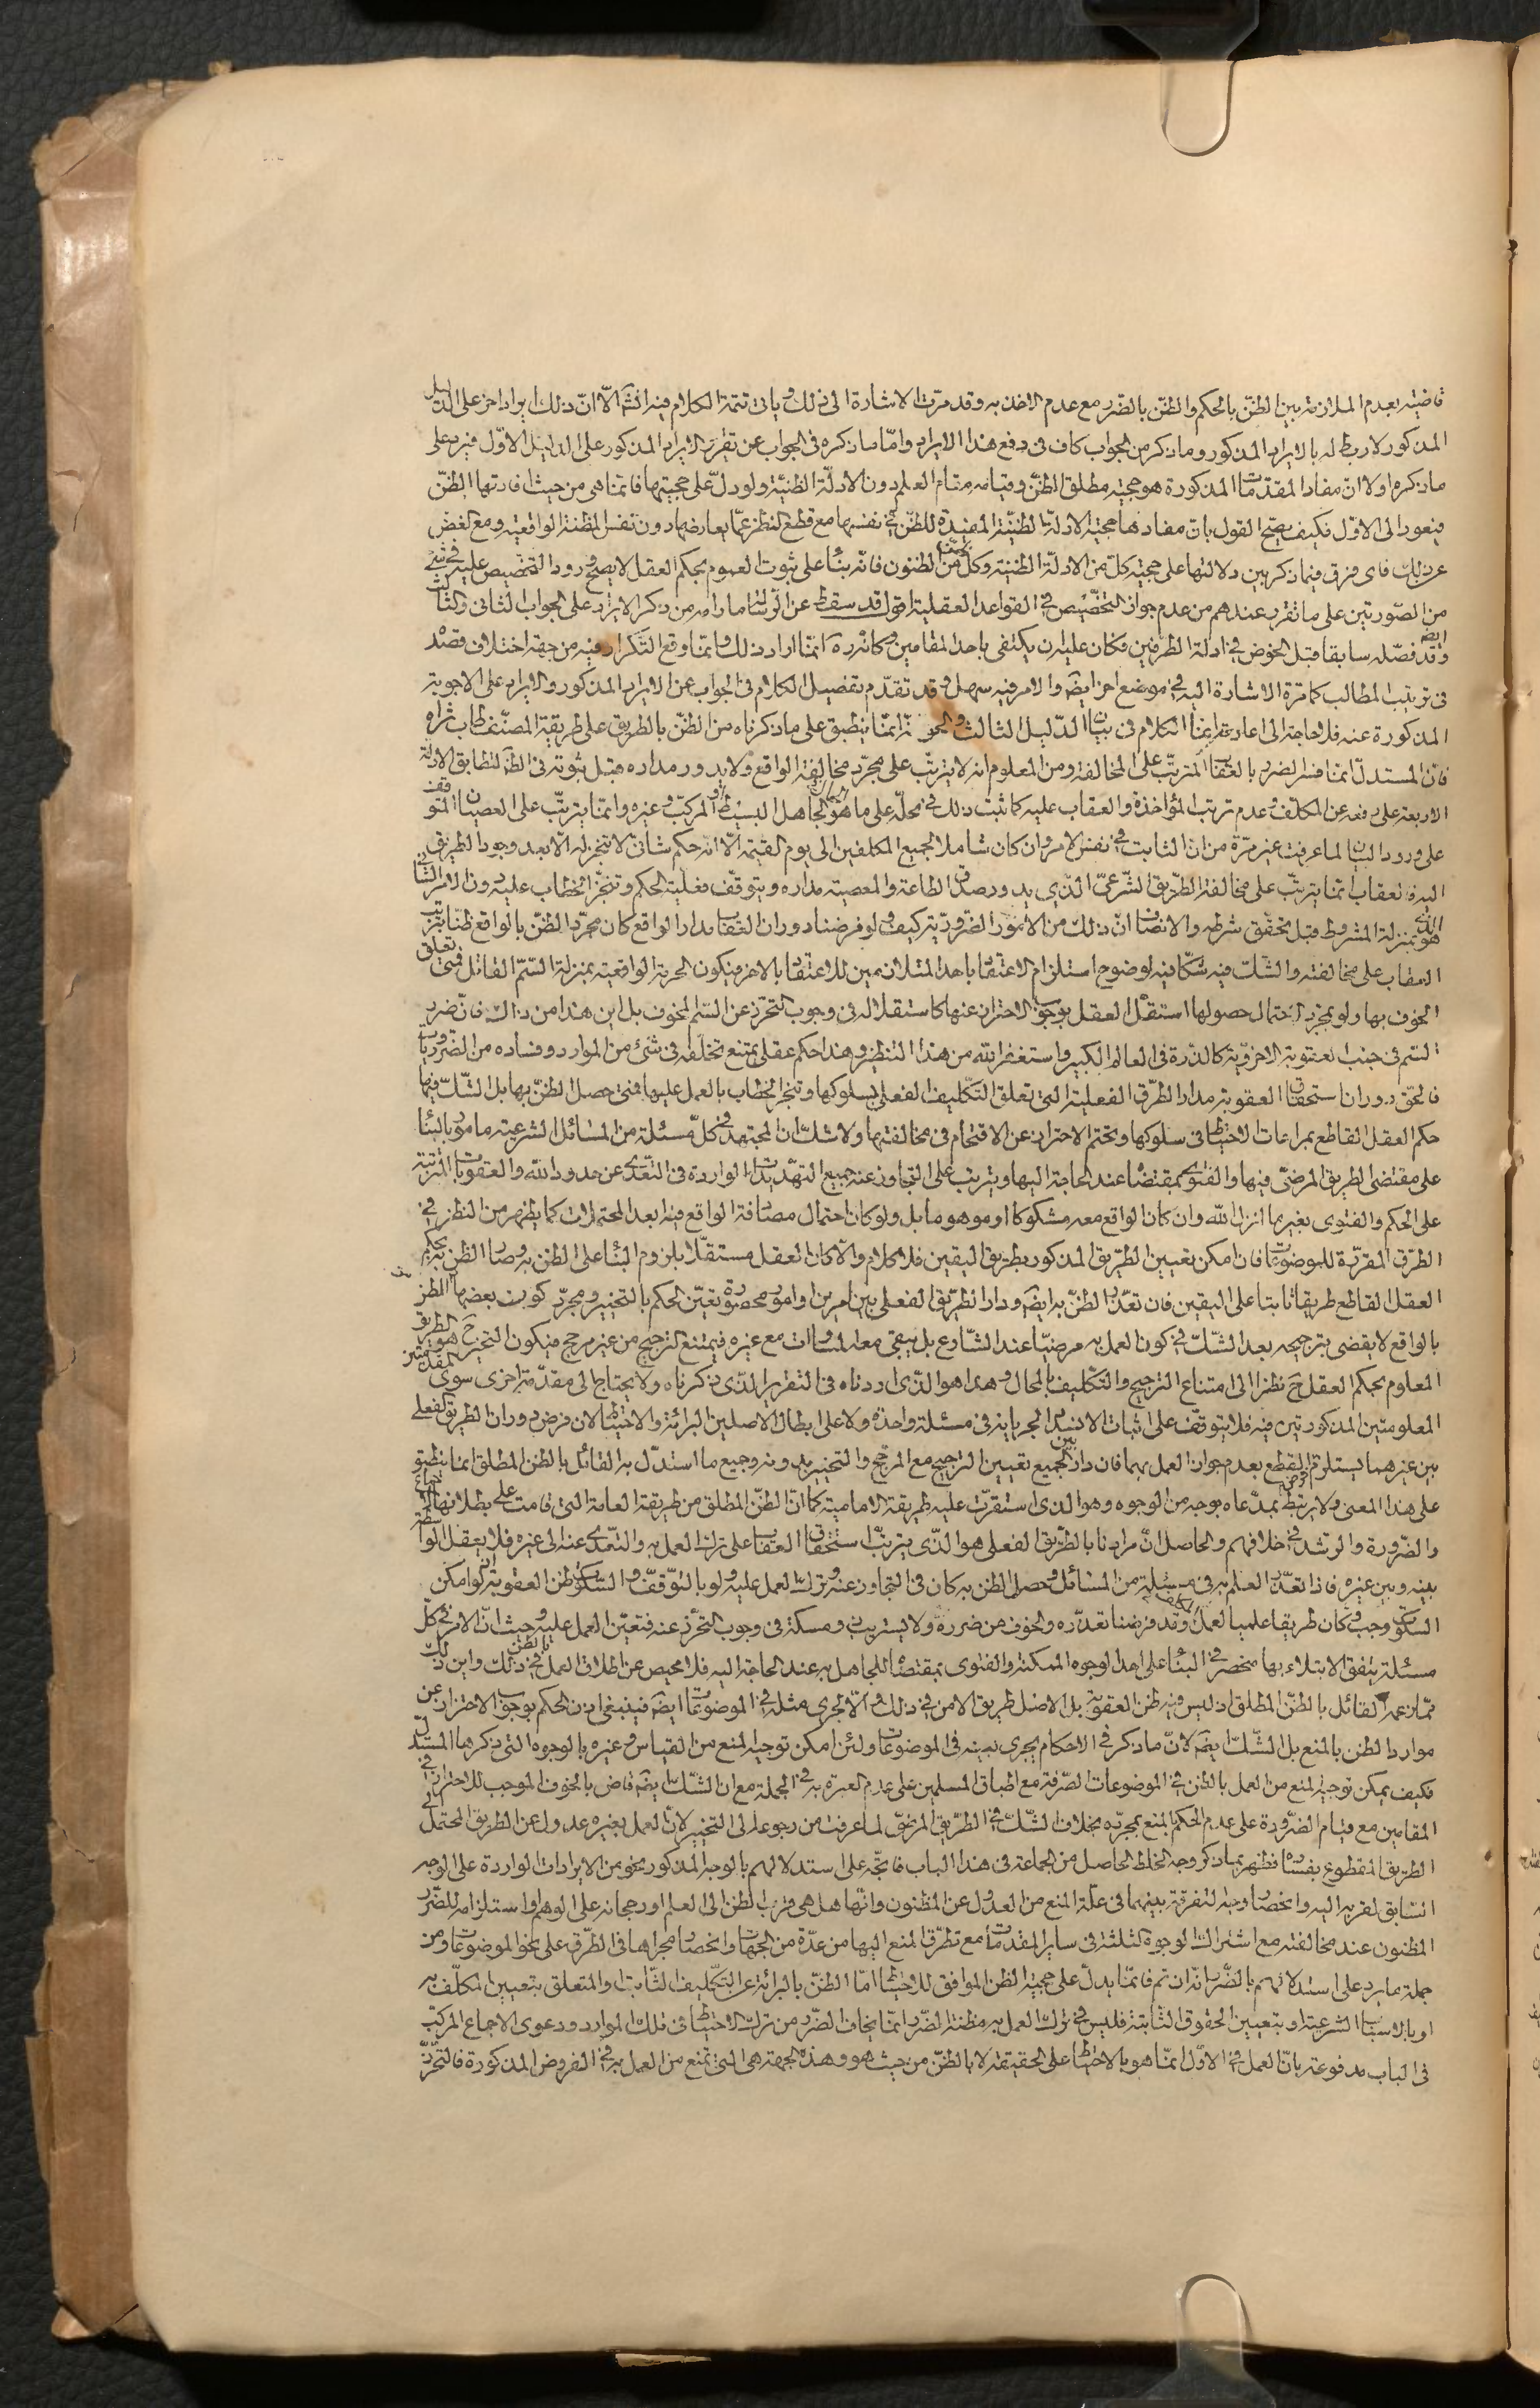 قاضية بعدم الملازمة بين الظنّ بالحكم والظنّ بالضّرر مع عدم الاخذ به وقد مرّت الاشارة الى ذلك وياتى تتمة الكلام فيه انشَ الّا انّ ذلك ايراد اخر على الدليل
المذكور لا ربط له بالايراد المذكور وما ذكر من الجواب كاف فى دفع هذا الايراد وامّا ما ذكره فى الجواب عن تقرير الايراد المذكور على الدليل الاوّل فيرد على
ما ذكره اولا انّ مفاد المقدّمات المذكورة هو حجية مطلق الظنّ وقيامه مقام العلم دون الادلّة الظنيّة ولو دلّ على حجيتها فانما هى من حيث افادتها الظنّ
فيعود الى الاوّل فكيف يصحّ القول بانّ مفادها حجية الادلّة الظنيّة المفيدة للظنّ فى نفسها مع قطع النظر عمّا يعارضها دون نفس المظنة الواقعية ومع الغضّ
عن ذلك فاى فرق فيما ذكر بين دلالتها على حجية كلّ من الادلّة الظنية وكلّ من الظنون فانّه بناء على ثبوت العموم بحكم العقل لا يصحّ ورود التخصيص عليه فى شئ
من الصّورتين على ما تقرّر عندهم من عدم جواز التخصّيص فى القواعد العقلية اقول قد سقط عن الرّسالة ما رامه من ذكر الايراد على الجواب الثانى والثالث
وقد فصّله سابقا قبل الخوض فى ادلة الطرفين فكان عليه ان يكتفى باحد المقامين وكانّه ره انّما اراد ذلك وانما وقع التّكرار فيه من جهة اختلاف قصّد
فى ترتيب المطالب كما مرّة الاشارة اليه فى موضع اخر ايضَ والامر فيه سهل وقد تقدّم تفصيل الكلام فى الجواب عن الايراد المذكور والايراد على الاجوبة
المذكورة عنه فلا حاجة الى اعادته انما الكلام فى بيان الدّليل الثالث والحق انّه انّما ينطبق على ما ذكرناه من الظنّ بالطريق على طريقة المصنّف طاب ثراه
فانّ المستدلّ انما فسّر الضرر بالعقاب المترتّب على المخالفة ومن المعلوم انه لا يترتّب على مجرّد مخالفة الواقع ولا يدور مداره قبل ثبوته فى الظنّ لتطابق الادلّة
الاربعة على رفعه عن المكلّف وعدم ترتب المؤاخذة والعقاب عليه كما ثبت ذلك فى محلّه على ما هو الجاهل البسيط او المركّب وغيره وانما يترتّب على العصيان المتوقف
على ورود البيان لما عرفت غير مرّة من انّ الثابت فى نفس الامر وان كان شاملا لجميع المكلفين الى يوم القيمة الّا انّه حكم شانىّ لا تنجز له الّا بعد وجود الطريق
اليه فالعقاب انما يترتّب على مخالفة الطّريق الشّرعىّ الّذى يدور صدق الطاعة والمعصية مداره ويتوقّف فعلية الحكم وتنجّز الخطاب عليه دون الامر الشّانى
الذى هو بمنزلة المشروط قبل تحقّق شرطه والانصاف انّ ذلك من الامور الضّرورية كيف ولو فرضنا دوران العقاب مدار الواقع كان مجرّد الظنّ بالواقع ظنّا بترتّب
العقاب على مخالفته والشّك فيه شكّا فيه لوضوح استلزام الاعتقاد باحد المتلازمين للاعتقاد بالاخر فيكون الحرمة الواقعية بمنزلة السّمّ القاتل فمتى تعلق
الخوف بها ولو بمجرّد احتمال حصولها استقلّ العقل بوجوب الاحتراز عنها كاستقلاله فى وجوب التحرّز عن السّم المخوف بل اين هذا من ذاك فانّ ضرر
السّم فى جنب العقوبة الاخرويّة كالذرّة فى العالم الكبير واستغفر الله من هذا التنظير وهذا حكم عقلى يمتنع تخلّفه فى شئ من الموارد وفساده من الضّروريات
فالحقّ دوران استحقاق العقوبة مدار الطّرق الفعلية التى تعلق التّكليف الفعلى بسلوكها وتنجز الخطاب بالعمل عليها فمتى حصل الظنّ بها بل الشّكّ فيها
حكم العقل القاطع بمراعات الاحتياط فى سلوكها وتحتم الاحتراز عن الاقتحام فى مخالفتها ولا شكّ انّ المجتهد فى كلّ مسئلة من المسائل الشرعية مامور بالبناء
على مقتضى الطريق المرضىّ فيها والفتوى بمقتضاه عند الحاجة اليها ويترتب على التجاوز عنه جميع التهّديدات الواردة فى التّعدى عن حدود الله والعقوبات المترتبة
على الحكم والفتوى بغير ما انزل الله وان كان الواقع معه مشكوكا او موهوما بل ولو كان احتمال مصادفة الواقع فيه ابعد المحتملات كما يظهر من النظر فى
الطّرق المقرّرة للموضوعات فان امكن تعيين الطّريق المذكور بطريق اليقين فلا كلام والّا كان العقل مستقلّا بلزوم البناء على الظن به وصار الظن به بحكم
العقل القاطع طريقا ثابتا على اليقين فان تعذّر الظنّ به ايضَ ودار الطّريق الفعلى بين امرين او امور محصورة تعيّن الحكم بالتخيير ومجرّد كون بعضها المظنون
بالواقع لا يقضى بترجيحه بعد الشّكّ فى كون العمل به مرضيّا عند الشّارع بل يبقى معه المساوات مع غيره فيمتنع الترجيح من غير مرجح فيكون التخيير حَ هو الطريق
المعلوم بحكم العقل حَ نظرا الى امتناع الترجيح والتكليف بالمحال وهذا هو الّذى اردناه فى التقرير الّذى ذكرناه ولا يحتاج الى مقدّمة اخرى سوى المقدّمتين
المعلومتين المذكورتين فيه فلا يتوقّف على اثبات الانسداد الجريانه فى مسئلة واحدة ولا على ابطال الاصلين البرائة والاحتياط لان فرض دوران الطريق الفعلى
بين غيرهما يستلزم القطع بعدم جواز العمل بهما فان دار بين الجميع تعيين الترجيح مع المرجّح والتخيير بدونه وجميع ما استدّل به القائل بالظن المطلق انما ينطبق
على هذا المعنى ولا يرتبط بمدّعاه بوجه من الوجوه وهو الذى استقرّت عليه طريقة الامامية كما انّ الظنّ المطلق من طريقة العامة التى قامت على بطلانها
والضّرورة والرّشد فى خلافهم والحاصل انّ مرادنا بالطّريق الفعلى هو الّذى يترتّب استحقاق العقاب على ترك العمل به والتّعدّى عنه الى غيره فلا يعقل الواسطة
بينه وبين غيره فاذا تعذّر العلم به فى مسئلة من المسائل وحصل الظن به كان فى التجاوز عنه وترك العمل عليه ولو بالتوّقفّ والسّكوت ظن العقوبة لو امكن
السّكوت وجب وكان طريقا علميا لعمل وقد فرضنا تعذّره والخوف من ضرره ولا يستريب ذو مسكة فى وجوب التحرّز عنه فتعيّن العمل عليه وحيث انّ الامر فى كلّ
مسئلة يتفق الابتلاء بها منحصر فى البناء على احد الوجوه الممكنة والفتوى بمقتضاه للجاهل به عند الحاجة اليه فلا محيص عن اطلاق العمل بالظن فى ذلك واين ذلك
ممّا زعمه القائل بالظنّ المطلق اذ ليس فيه ظن العقوبة بل الاصل طريق الامن فى ذلك والّا لجرى مثله فى الموضوعات ايضَ فينبغى اذن الحكم بوجوب الاحتراز عن
موارد الظن بالمنع بل الشّكّ ايضَ لانّ ما ذكر فى الاحكام يجرى بعينه فى الموضوعات ولئن امكن توجيه المنع من القياس وغيره بالوجوه التى ذكرها المستدلّ
فكيف يمكن توجيه المنع من العمل بالظن فى الموضوعات الصّرفة مع اطباق المسلمين على عدم العبرة به فى الجملة مع ان الشّكّ ايضَ قاض بالخوف الموجب للاحتراز فى
المقامين مع قيام الضّرورة على عدم الحكم بالمنع بمجرّده بخلاف الشّكّ فى الطّريق المرضىّ لما عرفت من رجوعه الى التخيير لانّ العمل بغيره عدول عن الطريق المحتمل الى
الطريق المقطوع بفساده فظهر بما ذكر وجه الخلط الحاصل من الجماعة فى هذا الباب فاتّجه على استدلالهم بالوجه المذكور نحو من الايرادات الواردة على الوجه
السّابق لقربه اليه وانحصار وجه التفرقة بينهما فى علّة المنع من العدول عن المظنون وانّها هل هى قرب الظن الى العلم او رجحانه على الوهم او استلزامه للضّرر
المظنون عند مخالفته مع اشتراك الوجوه الثلثة فى ساير المقدمات مع تطرّق المنع اليها من عدّة من الجهات وانحصار مجراها فى الطّرق على نحو الموضوعات ومن
جملة ما يرد على استدلالهم بالضّرر انّه ان تم فانّما يدلّ على حجية الظن الموافق للاحتياط امّا الظنّ بالبرائة عن التّكليف الثّابت او المتعلق بتعيين المكلّف به
او بالاسباب الشرعية او بتعيين الحقوق الثّابتة فليس فى ترك العمل به مظنة الضّرر انّما يخاف الضّرر من ترك الاحتياط فى تلك الموارد ودعوى الاجماع المركّب
فى الباب مدفوعة بانّ العمل فى الاوّل انمّا هو بالاحتياط على الحقيقة لا بالظنّ من حيث هو وهذه الجهة هى التى تمنع من العمل به فى الفروض المذكورة فالتحرّز